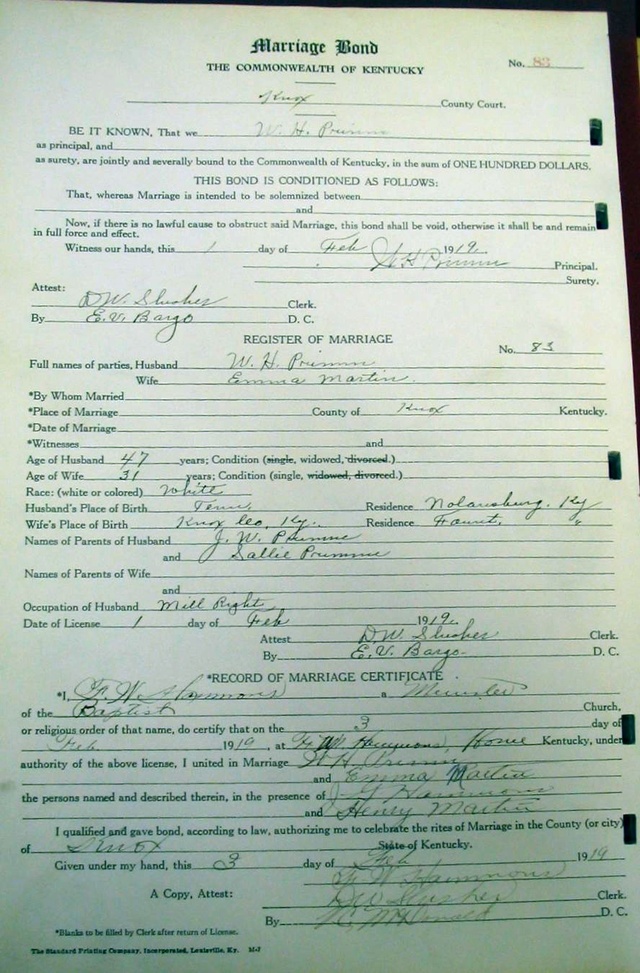 Marriage Bond
THE COMMONWEALTH OF KENTUCKY
No. 83
Knox County Court.
BE IT KNOWN, That we W. H. Primm
as principal, and
as surety, are jointly and severally bound to the Commonwealth of Kentucky, in the sum of ONE HUNDRED DOLLARS.
THIS BOND IS CONDITIONED AS FOLLOWS:
That, whereas Marriage is intended to be solemnized between
and
Now, if there is no lawful cause to obstruct said Marriage, this bond shall be void, otherwise it shall be and remain
in full force and effect.
Witness our hands, this 1 day of Feb 1919.
W H Primm Principal.
Surety.
Attest:
D. W. Slusher Clerk.
By E. V. Bargo D. C.
REGISTER OF MARRIAGE
No. 83
Full names of parties, Husband W. H. Primm
Wife Emma Martin.
*By Whom Married
*Place of Marriage County of Knox Kentucky.
*Date of Marriage
*Witnesses and
Age of Husband 47 years; Condition (single, widowed, divorced.)
Age of Wife 31 years; Condition (single, widowed, divorced.)
Race: (white or colored) White
Husband's Place of Birth Tenn. Residence Nolansburg. Ky
Wife's Place of Birth Knox Co, Ky. Residence Fount. "
Names of Parents of Husband J. W. Primm
and Sallie Primm
Names of Parents of Wife
and
Occupation of Husband Mill Right
Date of License 1 day of Feb 1919.
Attest D. W. Slusher Clerk.
By E. V. Bargo D. C.
*RECORD OF MARRIAGE CERTIFICATE
*I, F. W. Hammons a Minister
of the Baptist Church,
or religious order of that name, do certify that on the 3 day of
Feb 1919, at F. W. Hammons, Home Kentucky, under
authority of the above license, I united in Marriage W. H. Primm
and Emma Martin
the persons named and described therein, in the presence of Hammons
and Henry Martin
I qualified and gave bond, according to law, authorizing me to celebrate the rites of Marriage in the County (or city)
of Knox State of Kentucky.
Given under my hand, this 3 day of Feb 1919
F. W. Hammons
A Copy, Attest: D W Slusher Clerk.
By McDonald D. C.
*Blanks to be filled by Clerk after return of License.
The Standard Printing Company, Incorporated, Louisville, Ky. M-7